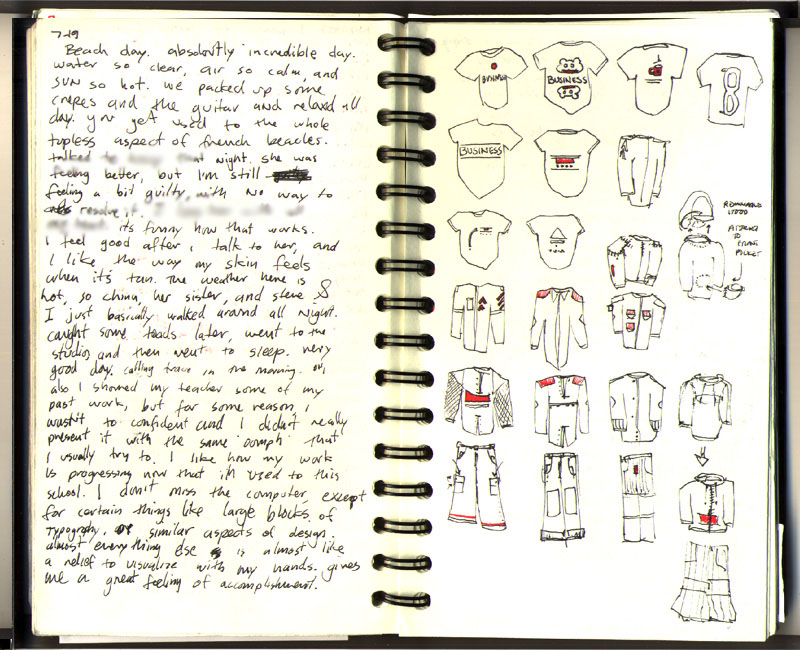 7-19
Beach day. absolutly incredible day.
water so clear, air so calm, and
sun so hot. we packed up some
crepes and the guitar and relaxed all
day. you get used to the whole
topless aspect of french beaches.
talked to that night. she was
feeling better, but I'm still
feeling a bit guilty, with no way to
resolve it.
its funny how that works.
I feel good after i talk to her, and
I like the way my skin feels
when it's tan. The weather here is
hot, so china, her sister, and steve &
I just basically walked around all night.
caught some toads later, went to the
studios and then went to sleep. very
good day. calling trace in the morning. oh,
also I showed my teacher some of my
past work, but for some reason, i
wasn't to confident and I didn't really
present it with the same "oomph" that
I usually try to. I like how my work
is progressing now that i'm used to this
school. I don't miss the computer, except
for certain things like large blocks of
typography, or similar aspects of design.
almost everything else is almost like
a relief to visualize with my hands. gives
me a great feeling of accomplishment.
BUSINESS
BUSINESS
8
BUSINESS
REMOVABLE
HOOD
ATTACHES
TO
POCKET